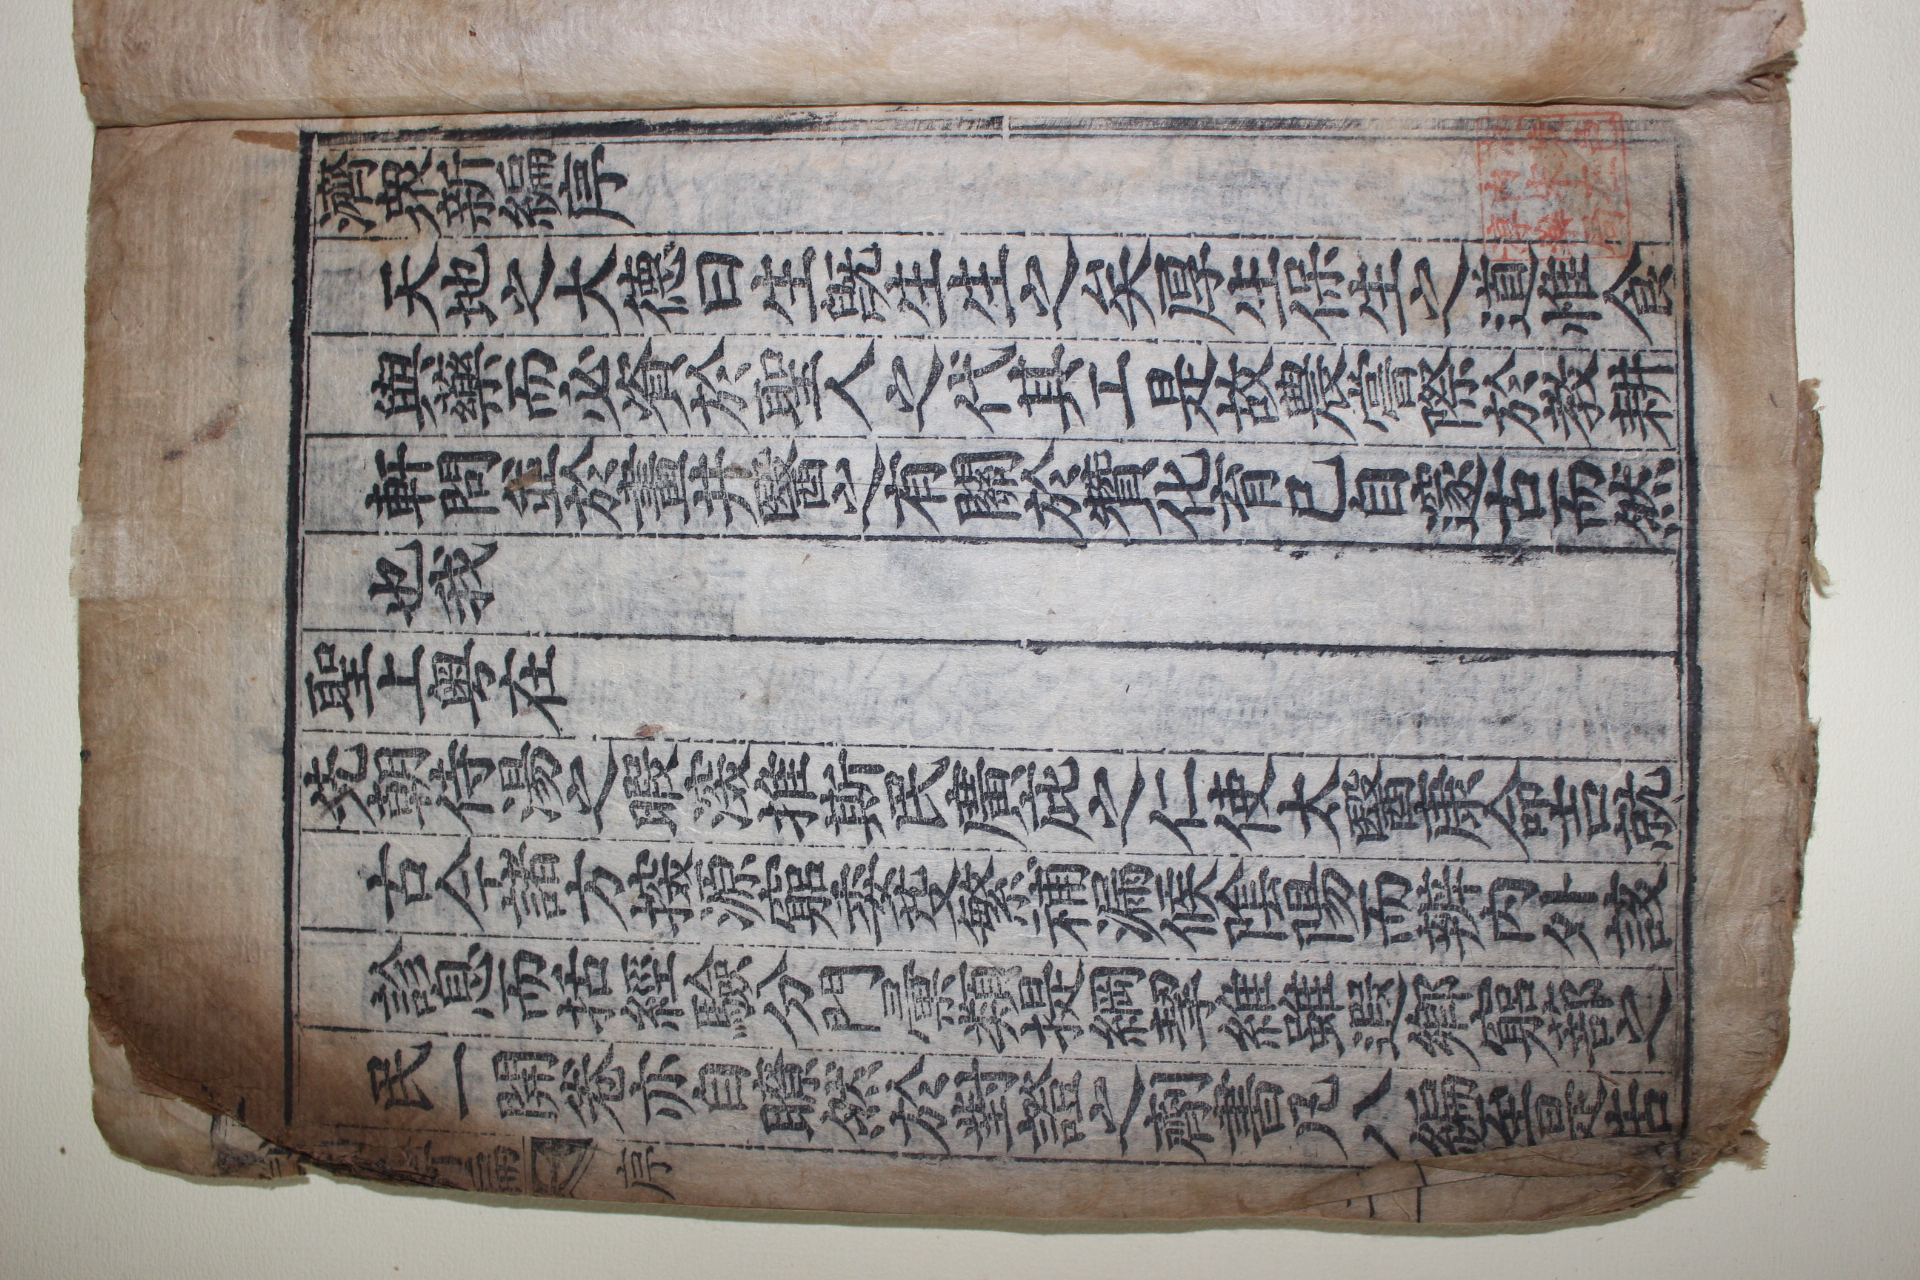 濟衆新編序
天地之大德曰生旣生生之矣厚生保生之道惟食
與藥而必資於聖人之代其工是故農嘗際於教耕
軒問並於畫井醫之有關於贊化育已自邃古而然
也我
聖上粤在
先朝侍湯之暇深推斯民廣庇之仁使太醫康命吉就
古今諸方探源窮委芟繁補漏候陰陽而辨內外該
診息而括經驗分門彙類提綱挈維雖遐鄉窮蔀之
民一開卷亦自瞭然於對證之劑書凡八編至是告
新編
序